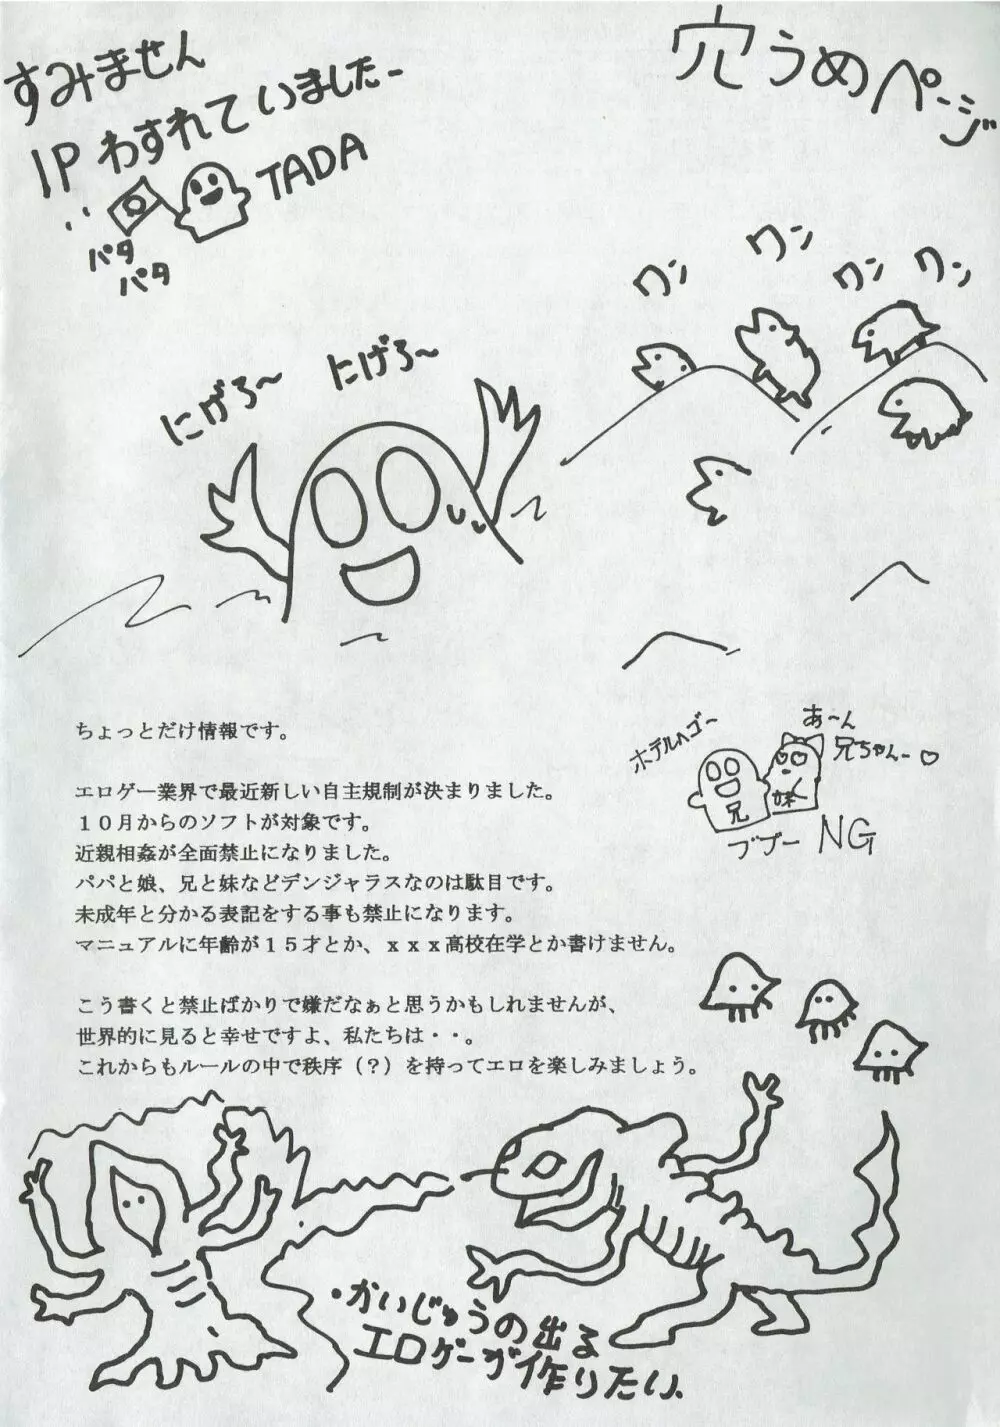 穴うめページ
すみません
1P わすれていましたー
TADA
パタ
パタ
ワン
ワン
ワン
ワン
にげろ～
にげろ～
ちょっとだけ情報です。
エロゲー業界で最近新しい自主規制が決まりました。
１０月からのソフトが対象です。
近親相姦が全面禁止になりました。
パパと娘、兄と妹などデンジャラスなのは駄目です。
未成年と分かる表記をする事も禁止になります。
マニュアルに年齢が１５才とか、ｘｘｘ高校在学とか書けません。
こう書くと禁止ばかりで嫌だなぁと思うかもしれませんが、
世界的に見ると幸せですよ、私たちは・・。
これからもルールの中で秩序（？）を持ってエロを楽しみましょう。
ホテルへゴー
あ～ん
兄ちゃんー♡
兄
妹
ブブー NG
・かいじゅうの出る
エロゲーが作りたい。